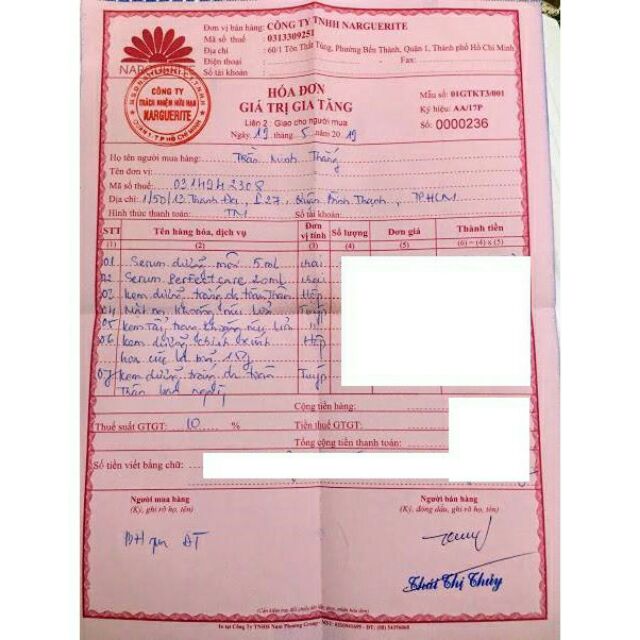 Đơn vị bán hàng: CÔNG TY TNHH NARGUERITE
Mã số thuế : 0313309251
Địa chỉ : 60/1 Tôn Thất Tùng, Phường Bến Thành, Quận 1, Thành phố Hồ Chí Minh
Điện thoại : Fax:
Số tài khoản:
NARGUERITE
CÔNG TY
TRÁCH NHIỆM HỮU HẠN
NARGUERITE
QUẬN 1 - T.P HỒ CHÍ MINH
HÓA ĐƠN
GIÁ TRỊ GIA TĂNG
Liên 2 : Giao cho người mua
Ngày 19 tháng 5 năm 2019
Mẫu số: 01GTKT3/001
Ký hiệu: AA/17P
Số: 0000236
Họ tên người mua hàng: Trần Minh Thắng
Tên đơn vị:
Mã số thuế: 0314942308
Địa chỉ: 1/50/12 Thanh Đa, P.27, Quận Bình Thạnh, TPHCM
Hình thức thanh toán: TM Số tài khoản:
STT Tên hàng hóa, dịch vụ Đơn vị tính Số lượng Đơn giá Thành tiền
(1) (2) (3) (4) (5) (6) = (4) x (5)
01 Serum dưỡng 5ml chai
02 Serum Perfect care 20ml chai
03 Kem dưỡng trắng da toàn Thân Hộp
04 Mặt nạ Khoáng núi lửa Tuýp
05 Kem Tẩy trang Khoáng núi lửa "
06 Kem dưỡng Hộp
hoa cúc
07 Kem dưỡng trắng da toàn Tuýp
Thân
Cộng tiền hàng:
Thuế suất GTGT: 10 % Tiền thuế GTGT:
Tổng cộng tiền thanh toán:
Số tiền viết bằng chữ:
Người mua hàng
(Ký, ghi rõ họ, tên)
Người bán hàng
(Ký, đóng dấu, ghi rõ họ, tên)
BH qua ĐT
Thái Thị Thủy
(Cần kiểm tra, đối chiếu khi lập, giao, nhận hóa đơn)